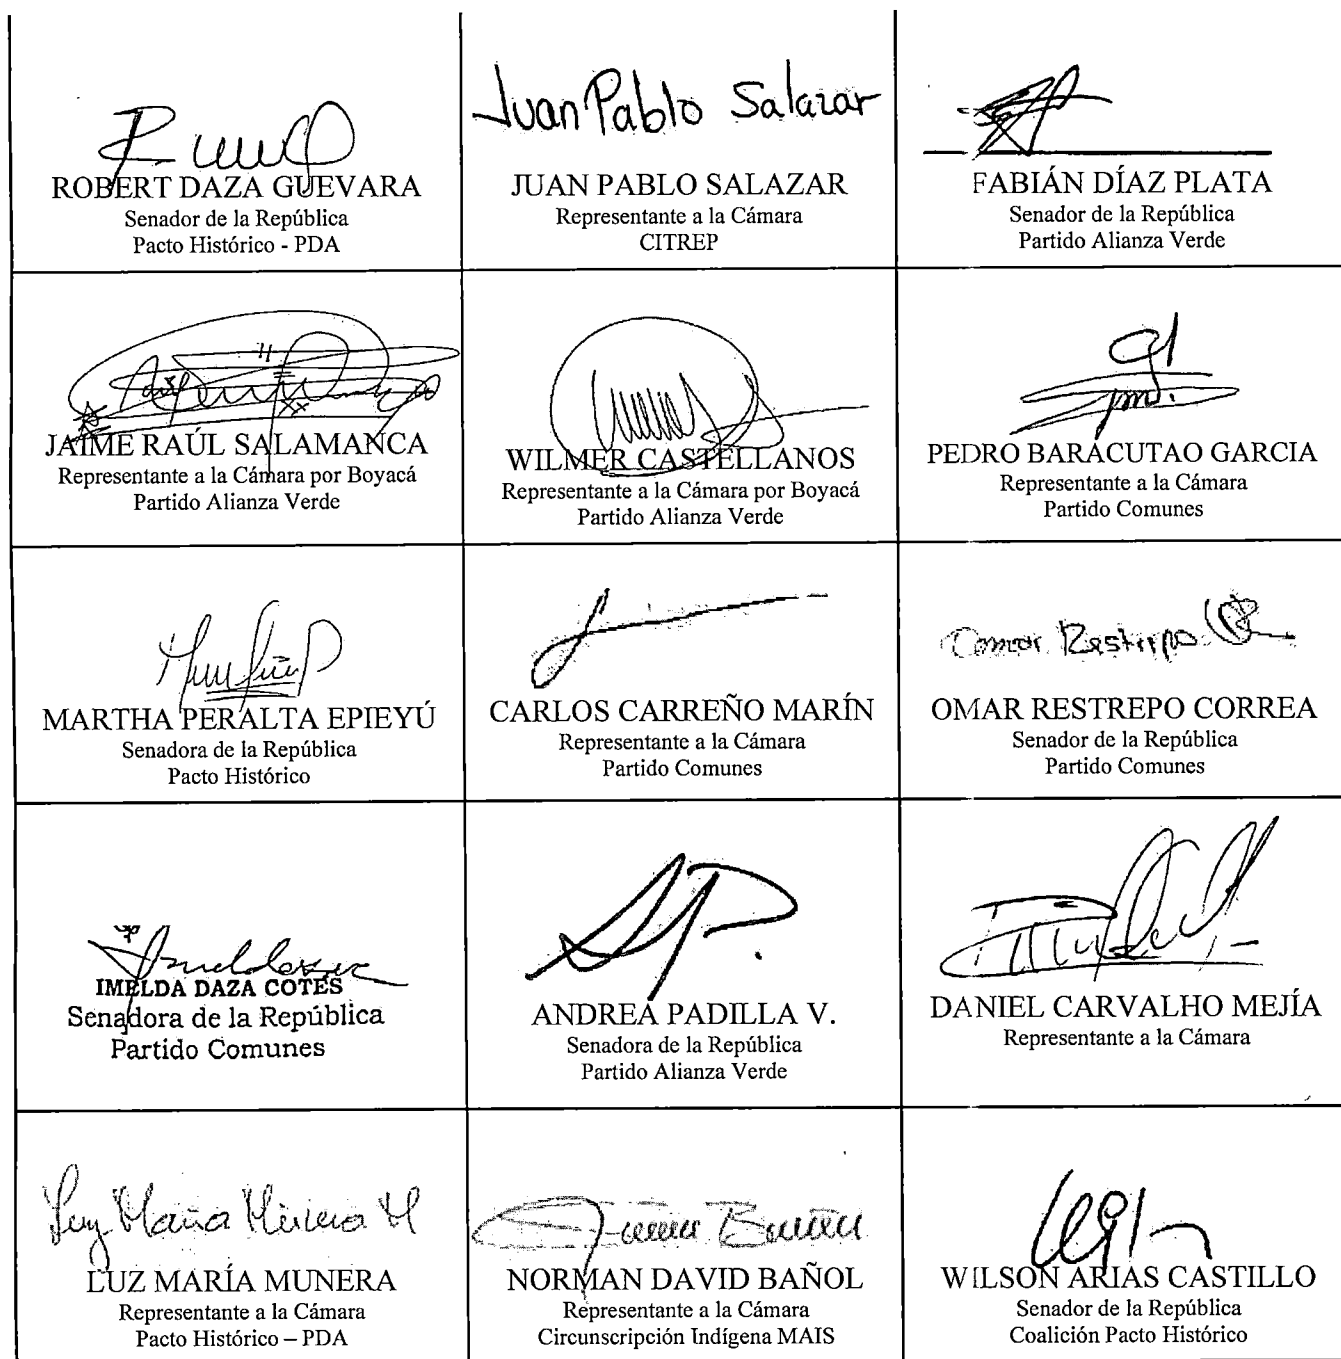 Juan Pablo Salazar
ROBERT DAZA GUEVARA
Senador de la República
Pacto Histórico - PDA
JUAN PABLO SALAZAR
Representante a la Cámara
CITREP
FABIÁN DÍAZ PLATA
Senador de la República
Partido Alianza Verde
JAIME RAÚL SALAMANCA
Representante a la Cámara por Boyacá
Partido Alianza Verde
WILMER CASTELLANOS
Representante a la Cámara por Boyacá
Partido Alianza Verde
PEDRO BARACUTAO GARCIA
Representante a la Cámara
Partido Comunes
MARTHA PERALTA EPIEYÚ
Senadora de la República
Pacto Histórico
CARLOS CARREÑO MARÍN
Representante a la Cámara
Partido Comunes
Omar Restrepo
OMAR RESTREPO CORREA
Senador de la República
Partido Comunes
IMELDA DAZA COTES
Senadora de la República
Partido Comunes
ANDREA PADILLA V.
Senadora de la República
Partido Alianza Verde
DANIEL CARVALHO MEJÍA
Representante a la Cámara
Luz María Munera M
LUZ MARÍA MUNERA
Representante a la Cámara
Pacto Histórico – PDA
NORMAN DAVID BAÑOL
Representante a la Cámara
Circunscripción Indígena MAIS
WILSON ARIAS CASTILLO
Senador de la República
Coalición Pacto Histórico